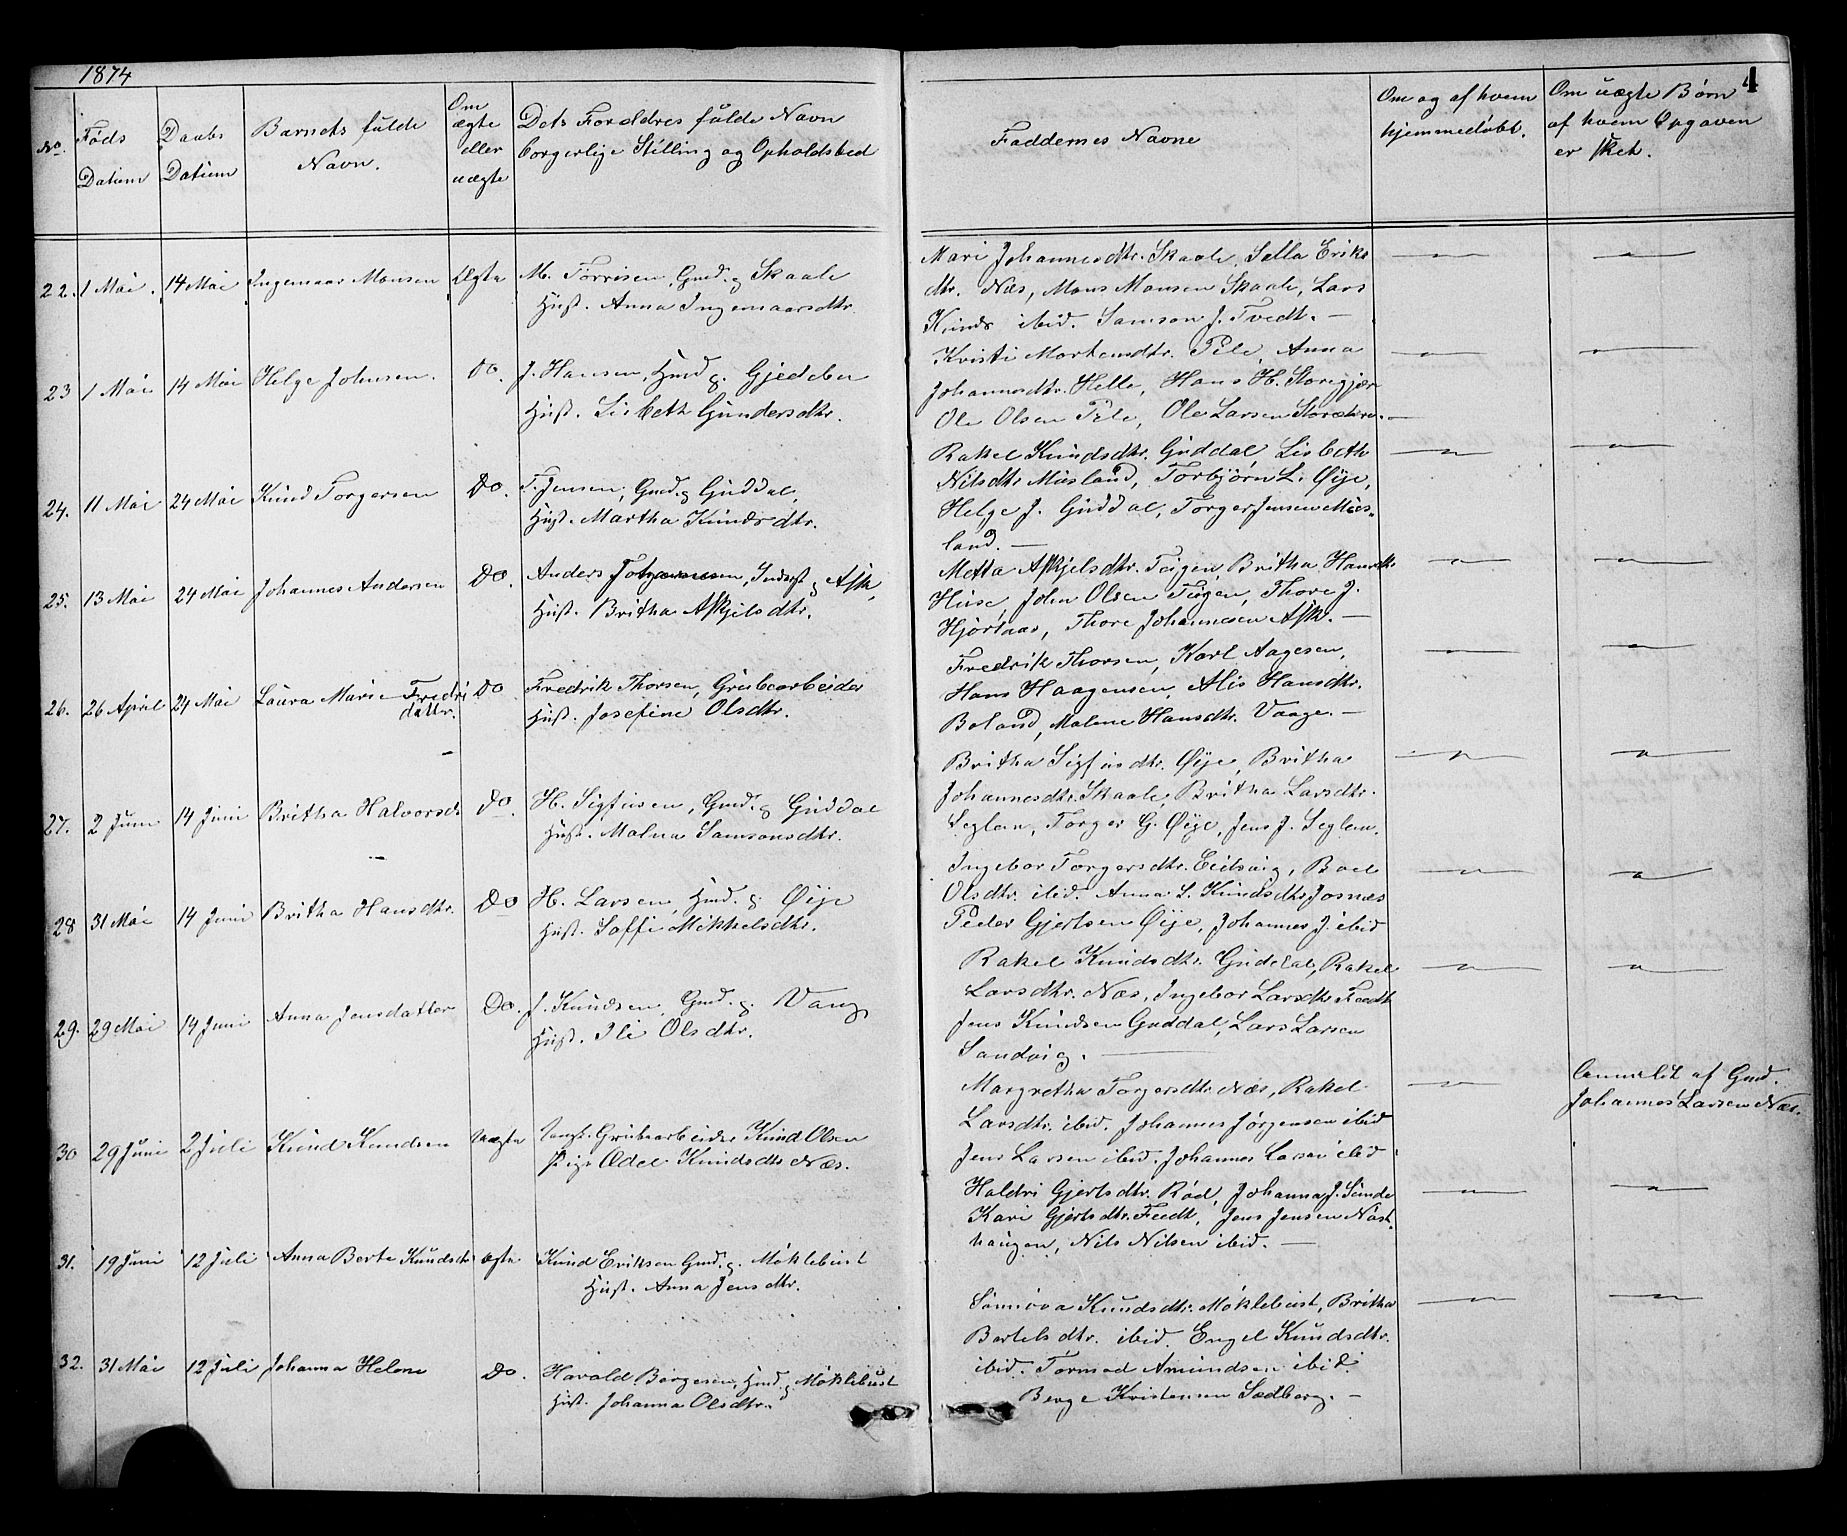 1874
4
No.
Føds Datum
Daabs Datum
Barnets fulde Navn.
Om ægte eller uægte
Dets Forældres fulde Navn borgerlige Stilling og Opholdsted
Faddernes Navne
Om og af hvem hjemmedøbt.
Om uægte Børn af hvem Opgaven er sket.
22. 1 Mai. 14 Mai Ingemaar Monsen Ægte M. Torrisen, Gmd. g. Skaale
Hust. Anna Ingemaarsdtr.
Mari Johannesdtr. Skaale, Sella Eriks
dtr. Næs, Mons Monsen Skaale, Lars
Knuds ibid. Samson J. Tvedt. —
23 1 Mai 14 Mai Helge Johnsen. Do. J. Hansen, Hmd g. Gjedebu
Hust. Lisbeth Gundersdtr.
Kristi Mortensdtr. Pile, Anna
Johannesdtr. Helle, Hans H. Storegjær
Ole Olsen Pile, Ole Larsen
24. 11 Mai 24 Mai Knud Torgersen Do. T. Jensen, Gmd. g Guddal,
Hust. Martha Knudsdtr.
Rakel Knudsdtr. Guddal, Lisbeth
Nilsdtr. Musland, Torbjørn L. Øye,
Helge J. Guddal, Torger Jensen Mus-
land. —
25. 13 Mai 24 Mai Johannes Andersen Do. Anders Johannesen, Inderst g Ask,
Hust. Britha Askjelsdtr.
Metta Askjelsdtr. Teigen, Britha Hansdtr
Huse, John Olsen Teigen, Thore J.
Hjortaas, Thore Johannesen Ask. —
26. 26 April 24 Mai Laura Marie Fredri
dattr. Do Fredrik Thorsen, Grubearbeider
Hust. Josefine Olsdtr.
Fredrik Thorsen, Karl Aagesen,
Hans Haagensen, Alis Hansdtr.
Boland, Malene Hansdtr. Vaage. —
27. 2 Juni 14 Juni Britha Halvorsd. Do. H. Sigfusen, Gmd. g Guddal
Hust. Malna Samsonsdtr.
Britha Sigfusdtr. Øye, Britha
Johannesdtr. Skaale, Britha Larsdtr.
Seglem, Torger G. Øye, Jens J. Seglem.
28 31 Mai 14 Juni Britha Hansdtr. Do H. Larsen, Hmd. g. Øye
Hust. Soffi Mikkelsdtr.
Ingebor Torgersdtr. Eidsvig, Boel
Olsdtr. ibid. Anna L. Knudsdtr. Josnæs
Peder Gjertsen Øye, Johannes J. ibid
29. 29 Mai 14 Juni Anna Jensdatter Do. J. Knudsen, Gmd. g. Vang
Hust. Ili Olsdtr.
Rakel Knudsdtr. Guddal, Rakel
Larsdtr. Næs, Ingebor Larsdtr. Feedt
Jens Knudsen Guddal, Lars Larsen
Sandvig. —
30 29 Juni 2 Juli Knud Knudsen Uægte Ungk. Grubearbeider Knud Olsen
Pige Ædel Knudsdtr. Næs.
Margretha Torgersdtr. Næs, Rakel
Larsdtr. ibid. Johannes Jørgensen ibid
Jens Larsen ibid. Johannes Larsen ibid
Anmeldt af Gmd.
Johannes Larsen Næs.
31. 19 Juni 12 Juli Anna Berte Knudsdtr Ægte Knud Eriksen Gmd. g. Møklebust
Hust. Anna Jensdtr.
Haldri Gjertsdtr. Rød, Johanna J. Sunde
Kari Gjertsdtr. Feedt, Jens Jensen Nøst-
haugen, Nils Nilsen ibid. —
32. 31 Mai 12 Juli Johanna Helene Do. Havald Børgesen, Hmd. g Møklebust
Hust. Johanna Olsdtr.
Sønnøva Knudsdtr. Møklebust, Britha
Bertelsdtr. ibid. Engel Knudsdtr.
ibid. Tormod Amundsen ibid.
Berge Kristensen Sædberg. —